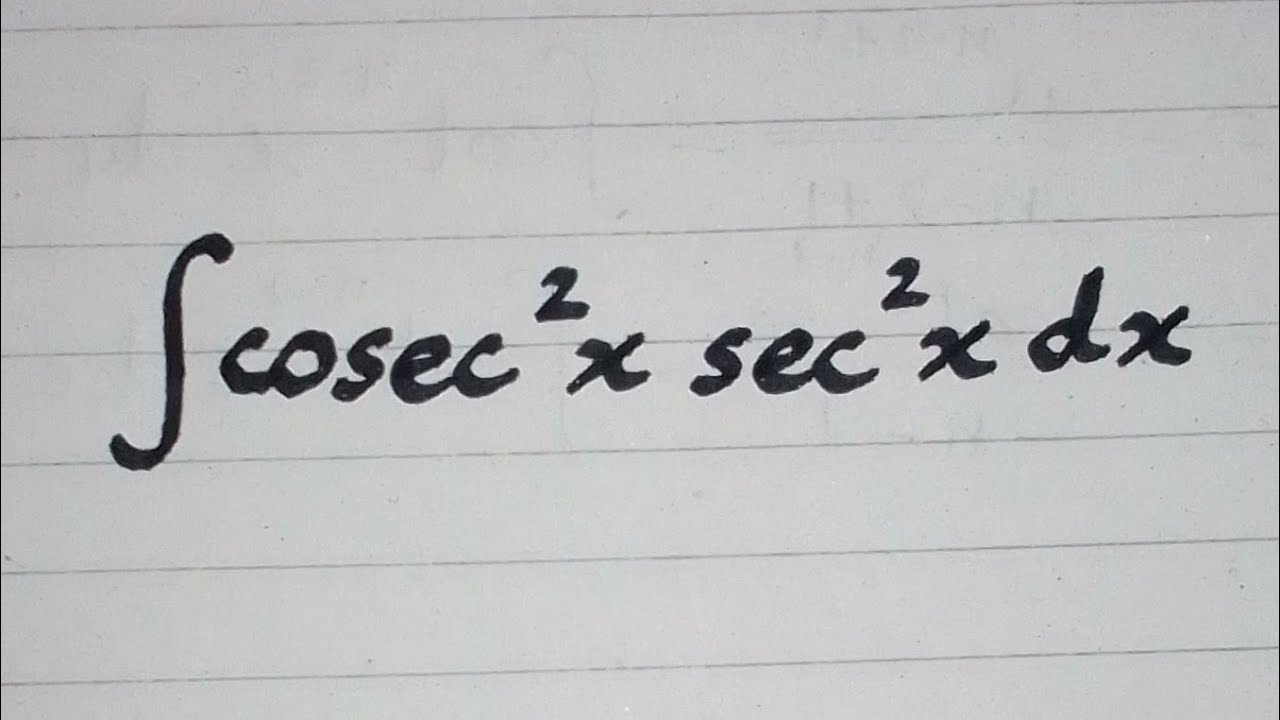 ∫cosec²x sec²x dx